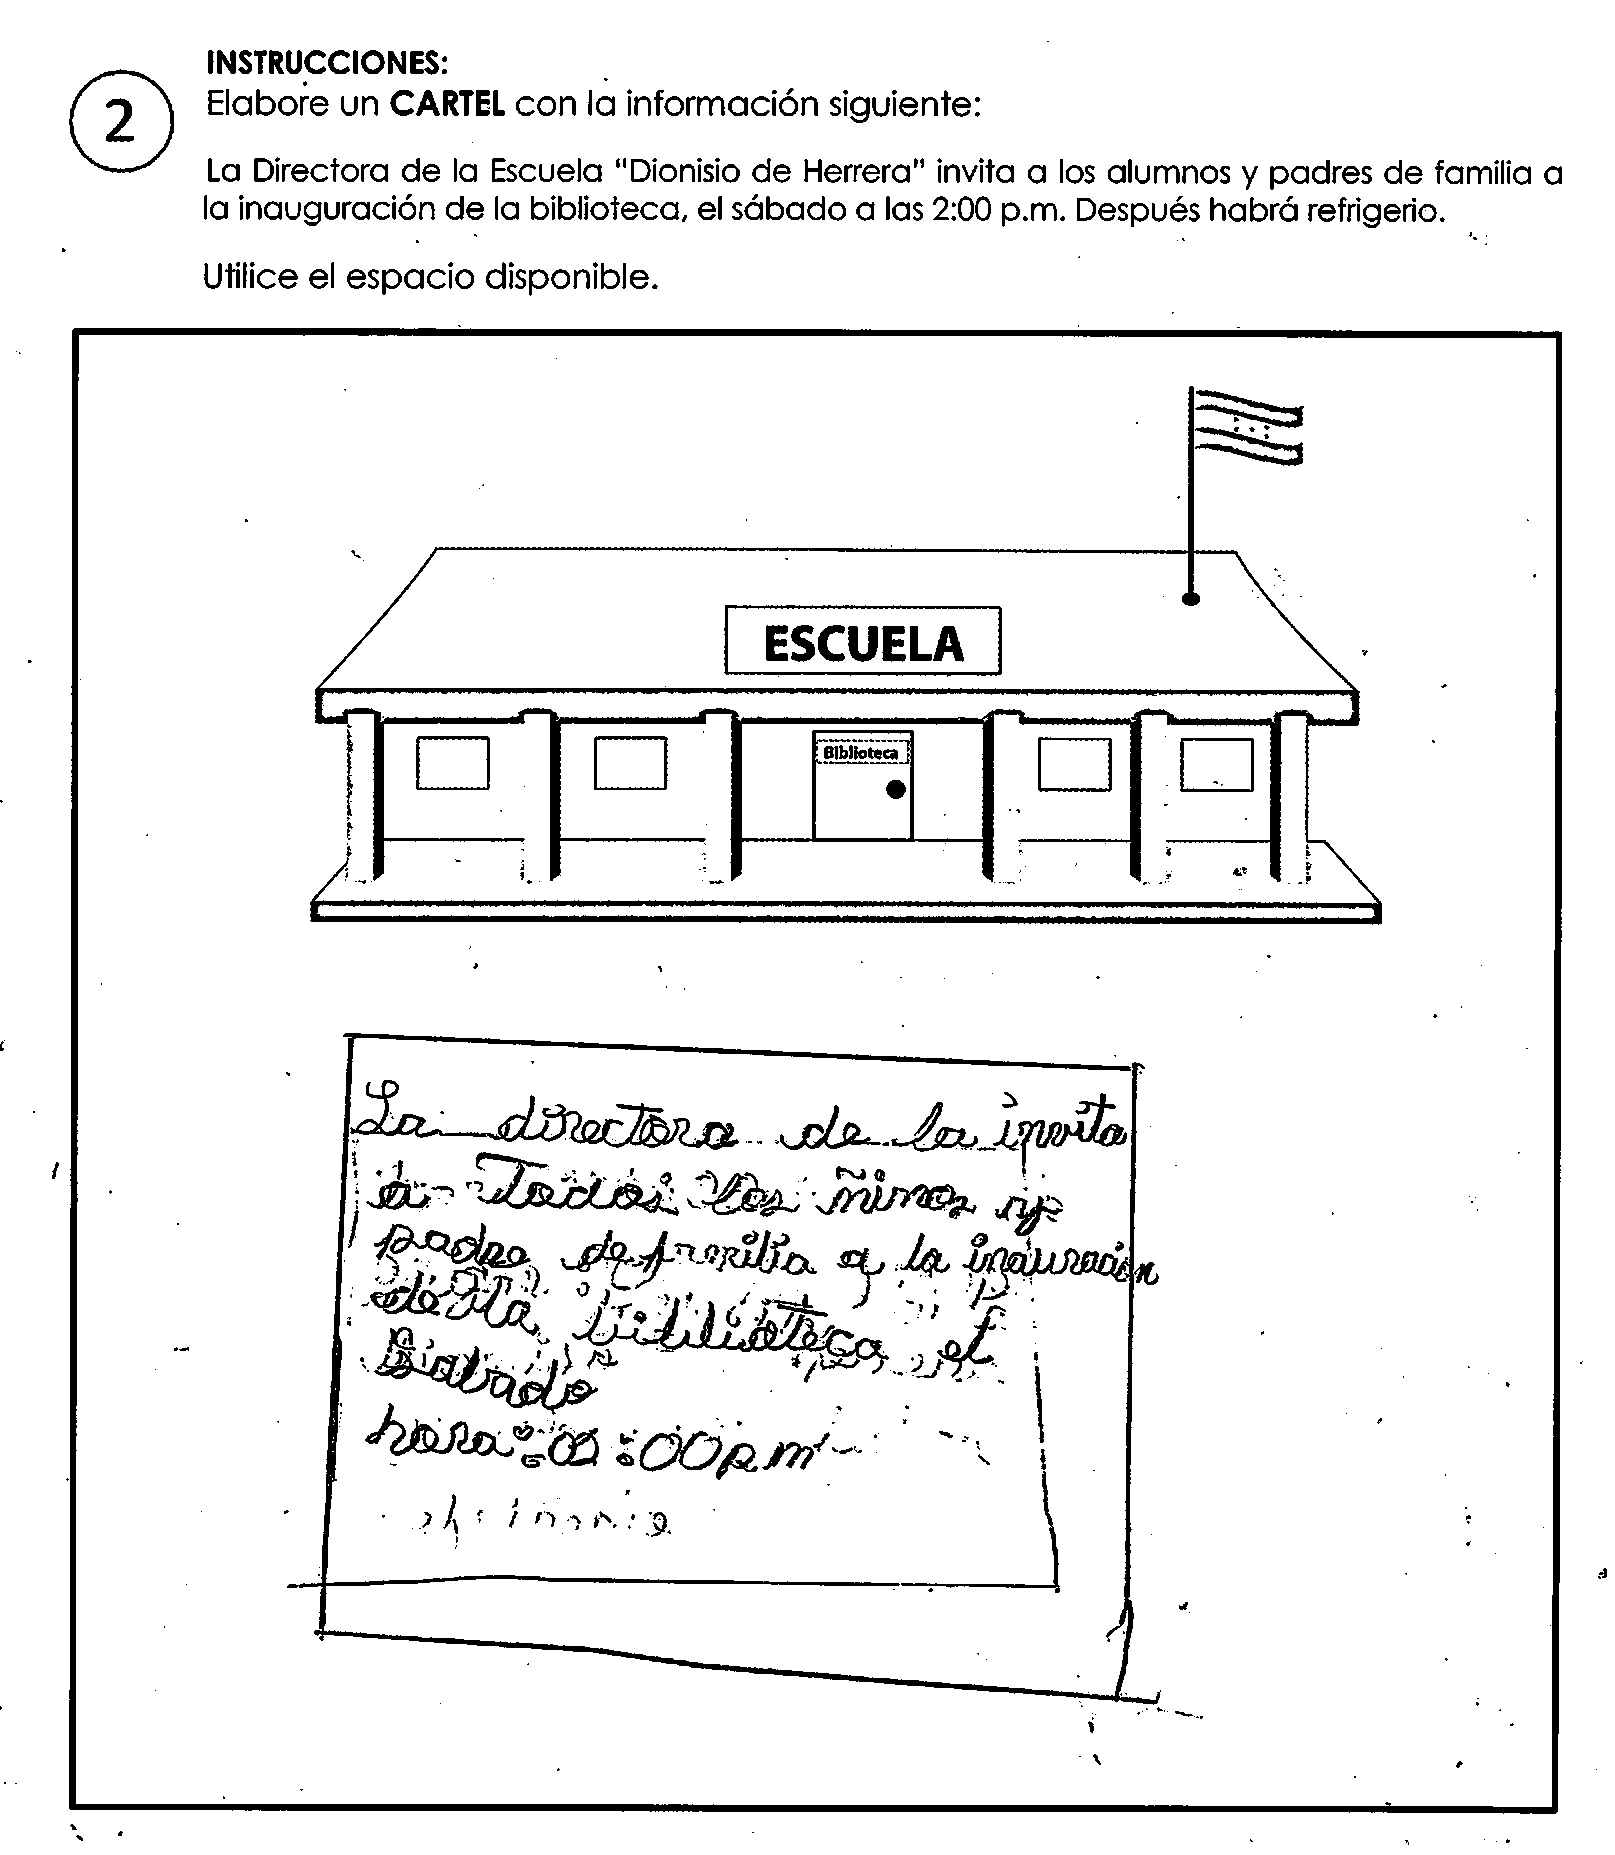 INSTRUCCIONES:
2
Elabore un CARTEL con la información siguiente:
La Directora de la Escuela "Dionisio de Herrera" invita a los alumnos y padres de familia a
la inauguración de la biblioteca, el sábado a las 2:00 p.m. Después habrá refrigerio.
Utilice el espacio disponible.
ESCUELA
Biblioteca
La directora de la invita
a Todos los ñinos y
padre de familia a la inauración
de la bibliioteca el
Sabado
hora: 02:00 p.m